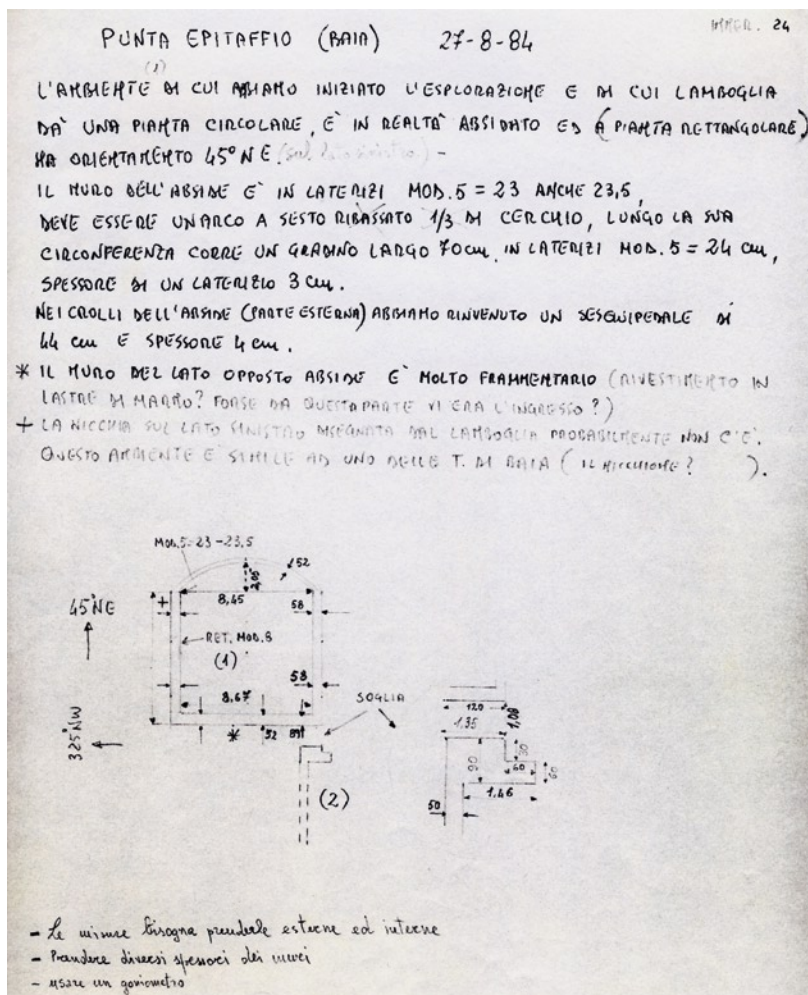 IMMER. 24
PUNTA EPITAFFIO (BAIA) 27-8-84
(1)
L'AMBIENTE DI CUI ABBIAMO INIZIATO L'ESPLORAZIONE E DI CUI LAMBOGLIA
DA' UNA PIANTA CIRCOLARE, E' IN REALTA' ABSIDATO ED A (PIANTA RETTANGOLARE)
HA ORIENTAMENTO 45° NE (sul lato sinistro) -
IL MURO DELL'ABSIDE E' IN LATERIZI MOD. 5 = 23 ANCHE 23,5,
DEVE ESSERE UN ARCO A SESTO RIBASSATO 1/3 DI CERCHIO, LUNGO LA SUA
CIRCONFERENZA CORRE UN GRADINO LARGO 70 cm, IN LATERIZI MOD. 5 = 24 cm,
SPESSORE DI UN LATERIZIO 3 cm.
NEI CROLLI DELL'ABSIDE (PARTE ESTERNA) ABBIAMO RINVENUTO UN SESQUIPEDALE DI
44 cm E SPESSORE 4 cm.
* IL MURO DEL LATO OPPOSTO ABSIDE E' MOLTO FRAMMENTARIO (RIVESTIMENTO IN
LASTRE DI MARMO? FORSE DA QUESTA PARTE VI ERA L'INGRESSO?)
+ LA NICCHIA SUL LATO SINISTRO DISEGNATA DAL LAMBOGLIA PROBABILMENTE NON C'E'.
QUESTO AMBIENTE E' SIMILE AD UNO DELLE T. DI BAIA (IL NICCHIONE? ).
MOD. 5=23-23,5
52
2,05
8,45
+
58
45° NE
RET. MOD. 8
(1)
58
8,67
SOGLIA
325° NW
*
52
89
(2)
120
1,35
1,08
90
30
60
60
1,46
50
- Le misure bisogna prenderle esterne ed interne
- Prendere diversi spessori dei muri
- usare un goniometro